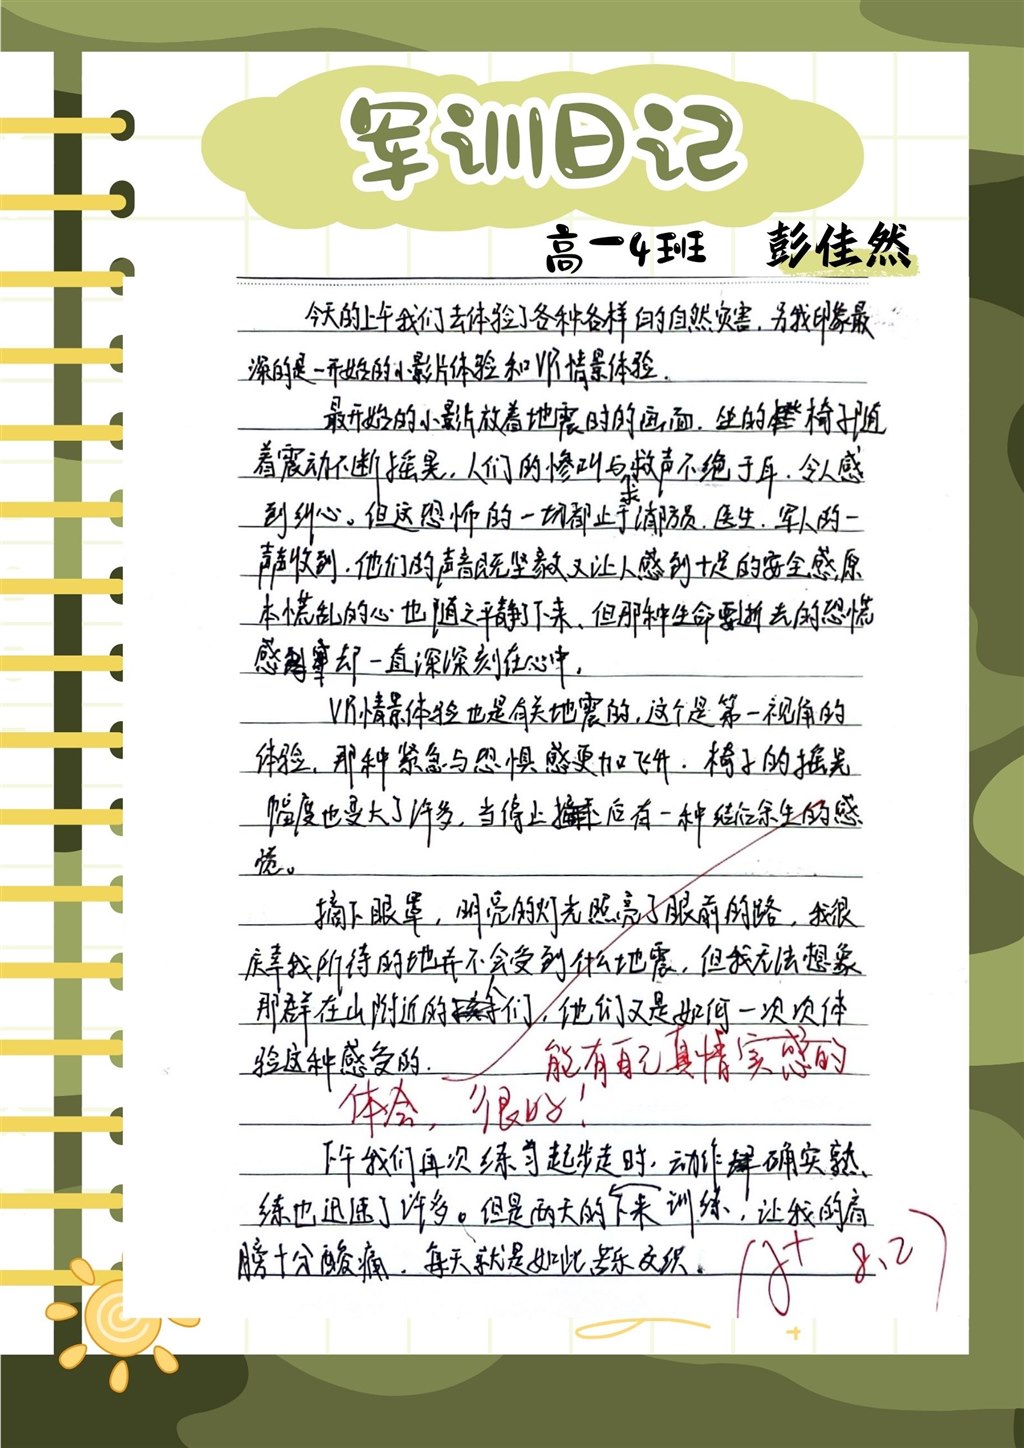 军训日记
高一4班 彭佳然
今天的上午我们去体验了各种各样的自然灾害,另我印象最
深的是一开始的小影片体验和VR情景体验.
最开始的小影片放着地震时的画面.坐的椅子随
着震动不断摇晃,人们的惨叫与求救声不绝于耳.令人感
到纠心。但这恐怖的一切都止于消防员.医生.军人的一
声声收到.他们的声音既坚毅又让人感到十足的安全感,原
本慌乱的心也随之平静下来,但那种生命要逝去的恐慌
感却一直深深刻在心中.
VR情景体验也是有关地震的,这个是第一视角的
体验,那种紧急与恐惧感更加飞升.椅子的摇晃
幅度也变大了许多,当停止后有一种劫后余生的感
慌。
摘下眼罩,明亮的灯光照亮了眼前的路,我很
庆幸我所待的地并不会受到什么地震,但我无法想象
那群在山附近的人们,他们又是如何一次次体
验这种感受的.
能有自己真情实感的
体会,很好!
下午我们再次练习起步走时,动作确实熟
练也迅速了许多。但是两天的下来训练,让我的肩
膀十分酸痛.每天就是如此苦乐交织.
8.2